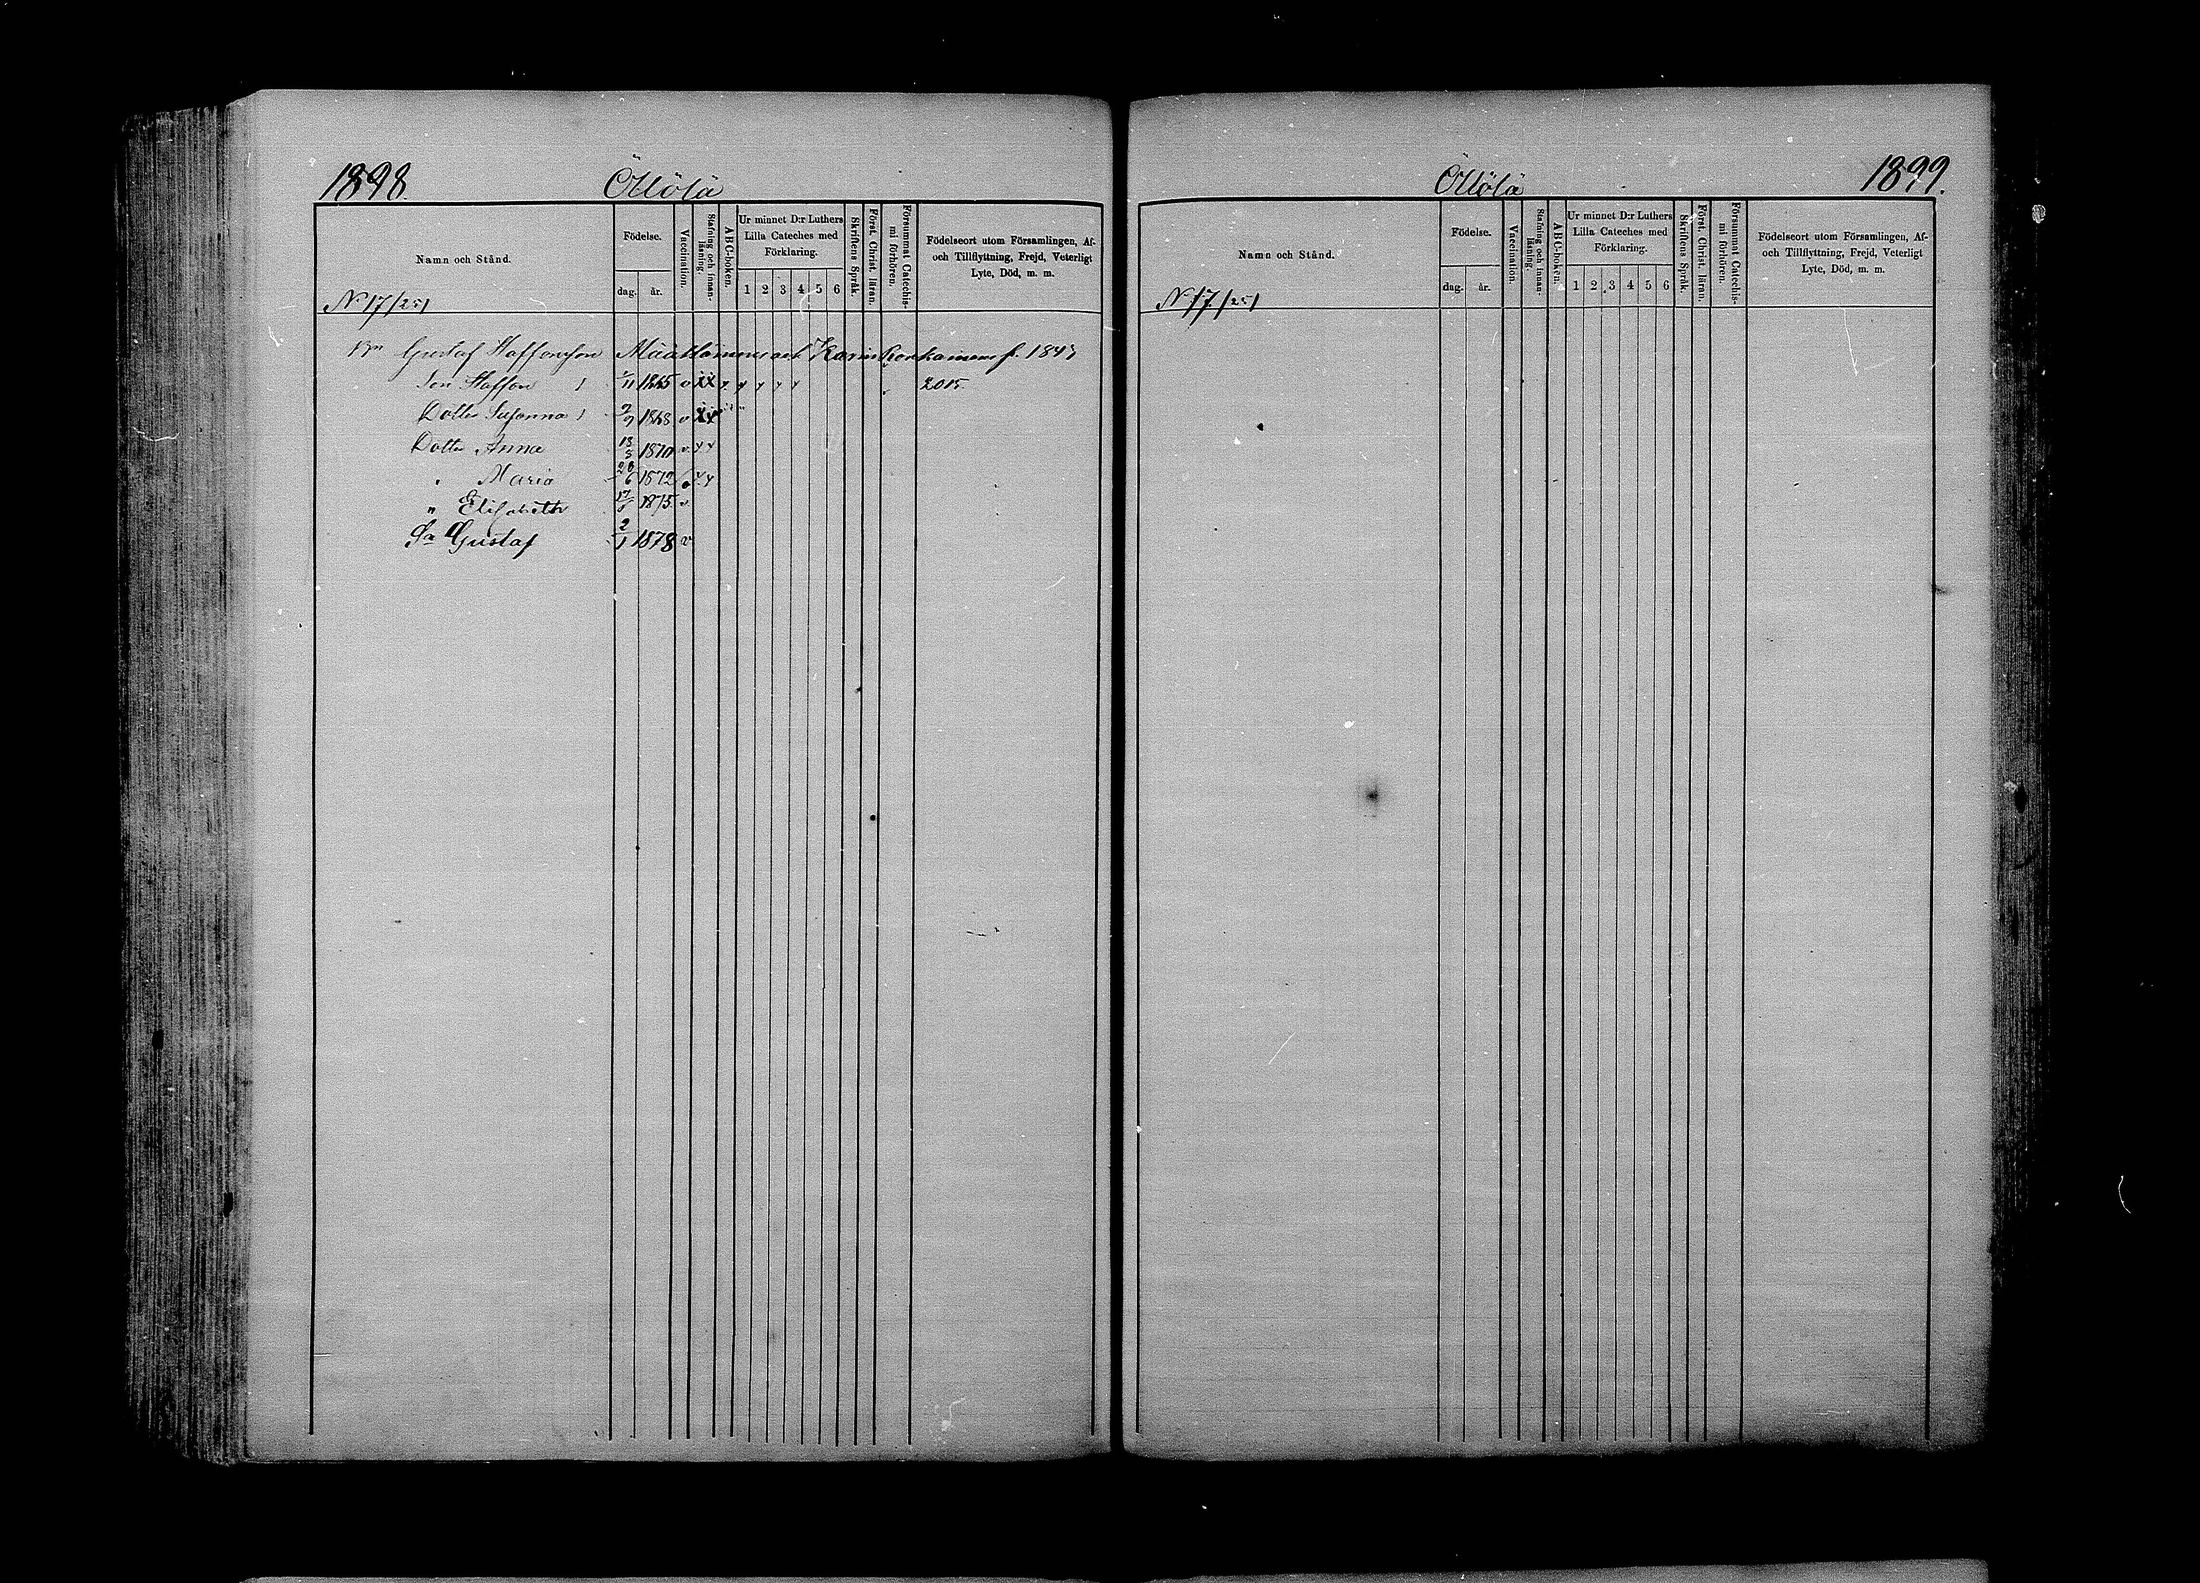 1898.
Öllölä
Namn och Stånd.
Födelse.
dag.
år.
Vaccination.
Stafning och innanläsning.
ABC-boken.
Ur minnet D:r Luthers
Lilla Cateches med
Förklaring.
1 2 3 4 5 6
Skriftens Språk.
Först. Christ. läran.
Försummat Catechismi förhören.
Födelseort utom Församlingen, Af-
och Tillflyttning, Frejd, Veterligt
Lyte, Död, m. m.
N 17/251
Bn Gustaf Staffansson Määttänens och Karin Korhainens p. 1843
Son Staffan 1/11 1865 v x x y y y y y 2015.
Dotter Susanna 2/7 1868 v x x
Dotter Anna 13/5 1870 v y y
" Maria 28/6 1872 v y y
" Elisabeth 17/ 1875 v
Sn Gustaf 2/1 1878 v
Öllölä
1899.
Namn och Stånd.
Födelse.
dag.
år.
Vaccination.
Stafning och innanläsning.
ABC-boken.
Ur minnet D:r Luthers
Lilla Cateches med
Förklaring.
1 2 3 4 5 6
Skriftens Språk.
Först. Christ. läran.
Försummat Catechismi förhören.
Födelseort utom Församlingen, Af-
och Tillflyttning, Frejd, Veterligt
Lyte, Död, m. m.
N 17/251